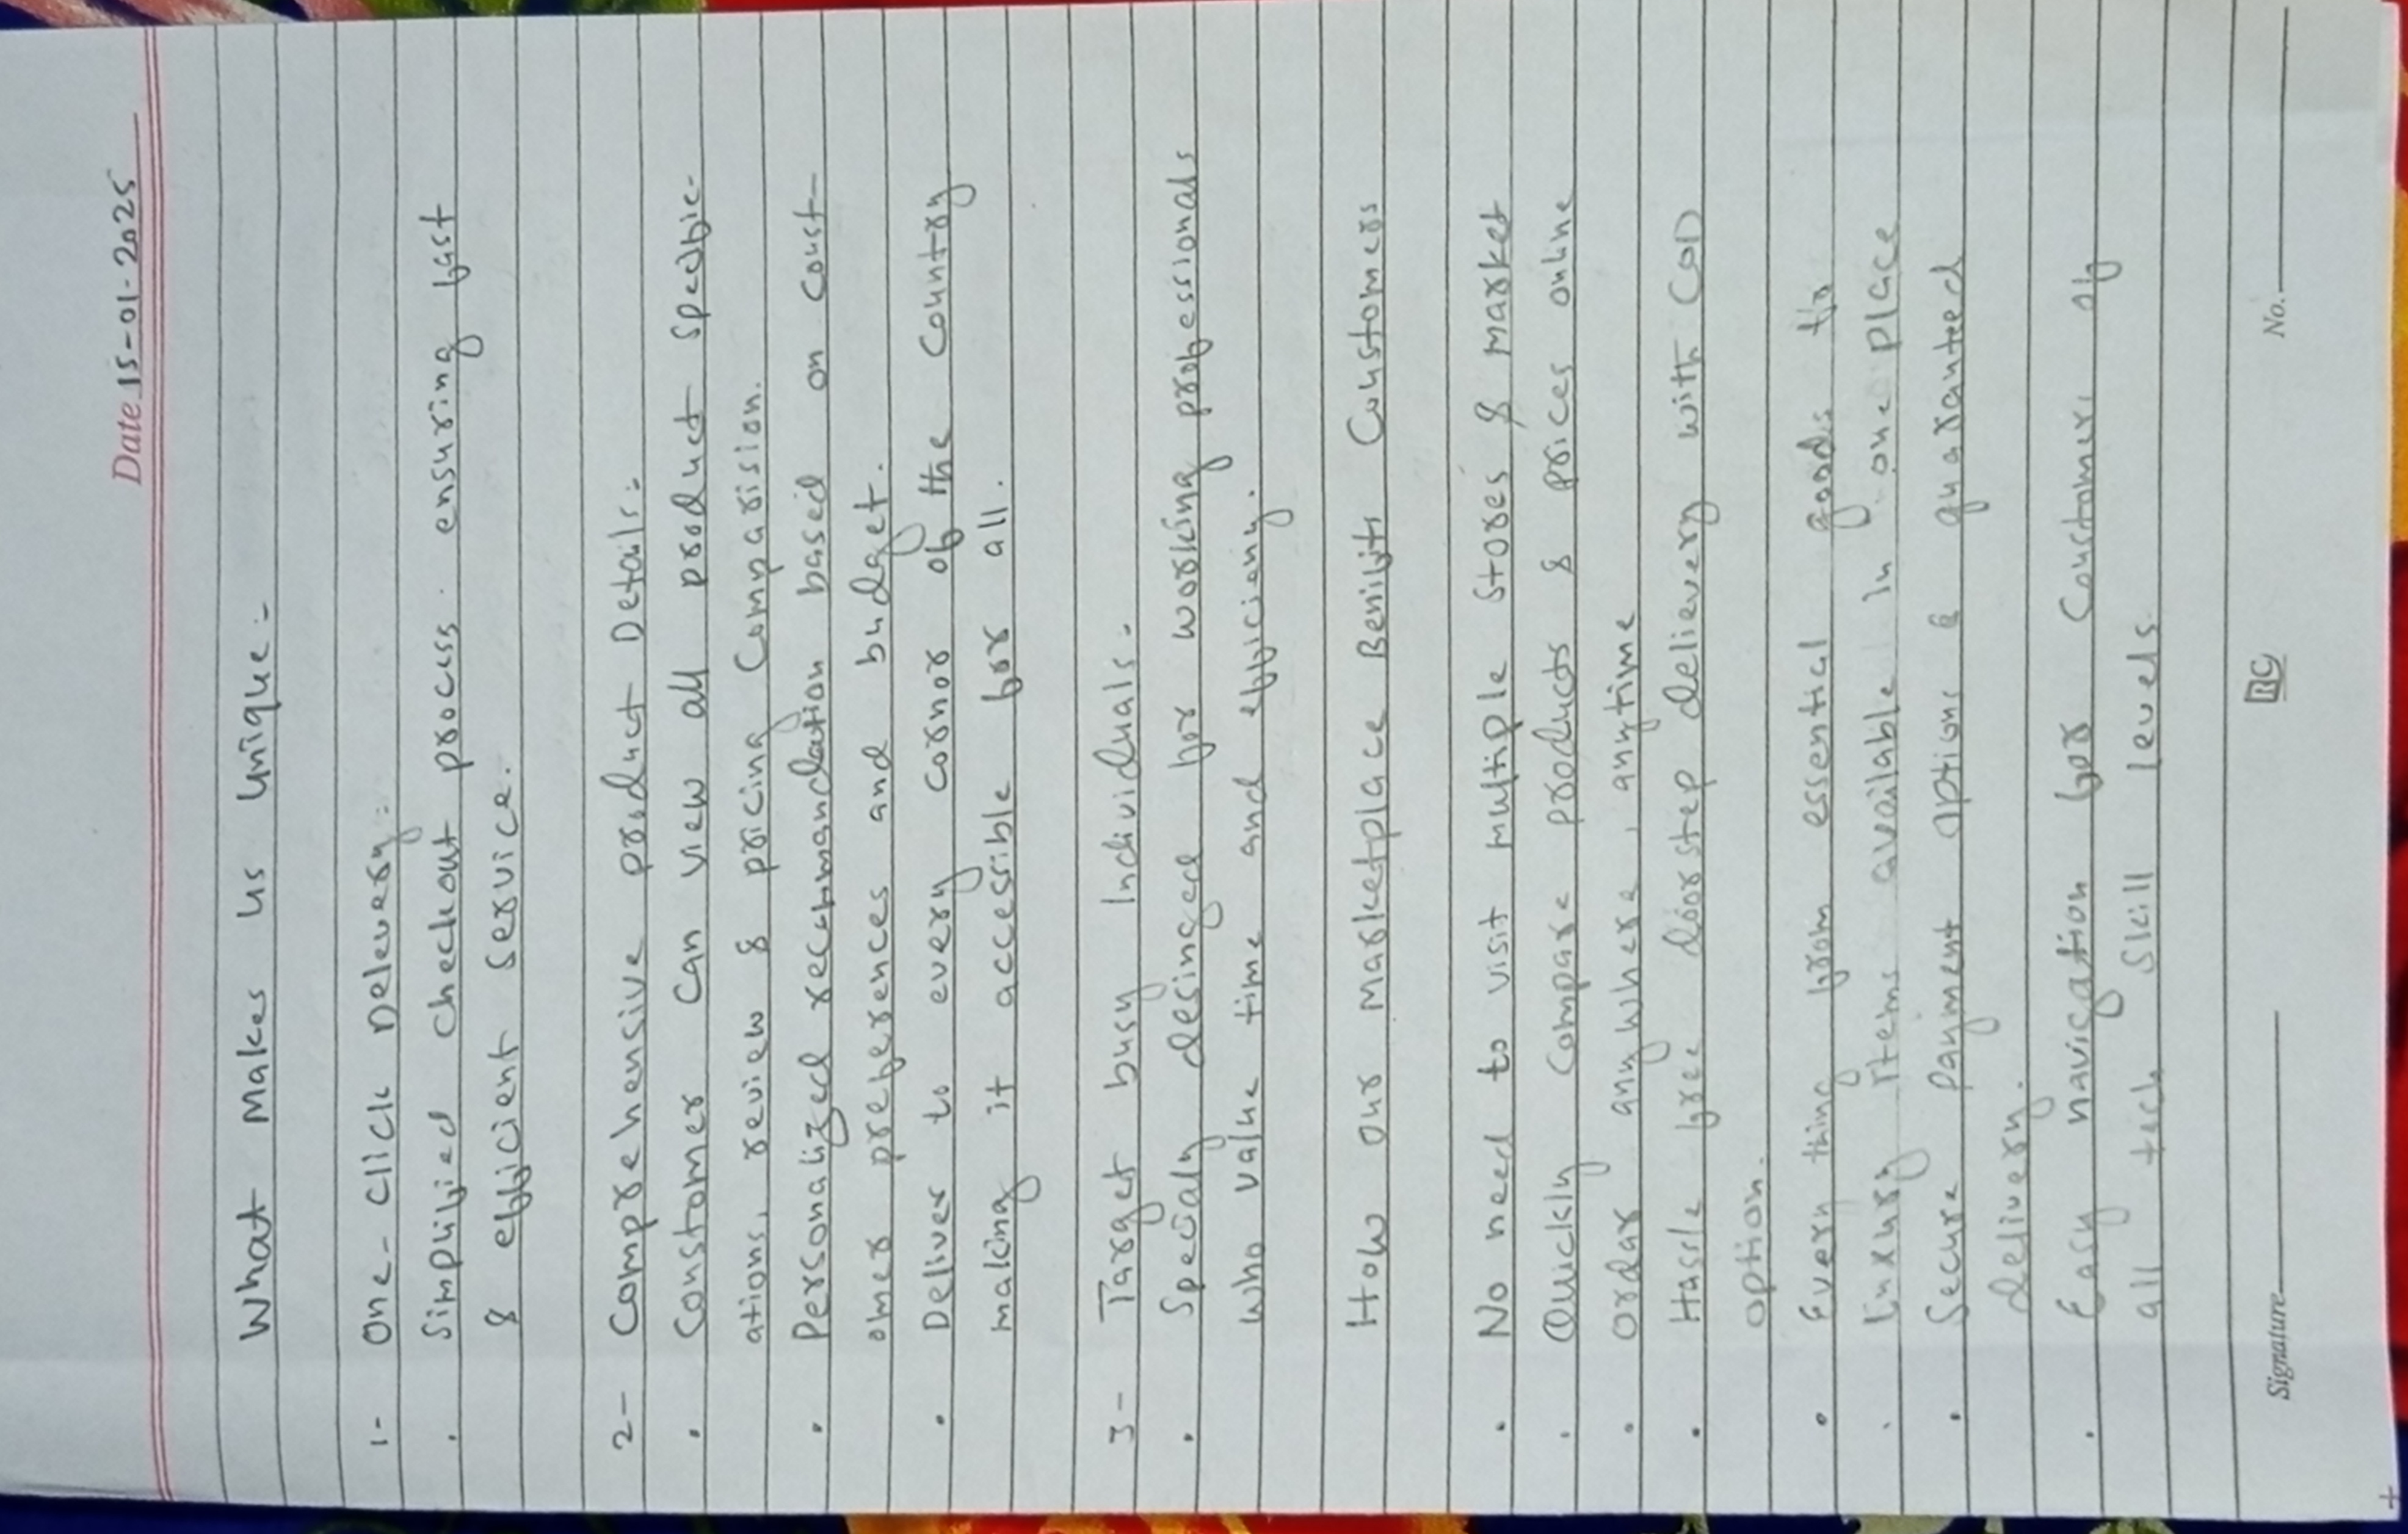 Date 15-01-2025
What Makes us Unique:-
1- One-Click Delevery:
. Simplified checkout process. ensuring fast
& efficient service.
2- Comprehensive product Details:
. Constomer can view all product specific-
ations, review & pricing Comparision.
. Personalized recommandation based on coust-
omer preferences and budget.
. Deliver to every cornor of the Country
making it accessible for all.
3- Target busy Individuals.
. Specialy desinged for working professionals
who value time and efficieny.
How our Marketplace Benifits Coustomers
. No need to visit multiple stores & market
. Quickly compare products & prices online
. ordar anywhere, anytime
. Hassle free doorstep delievery with COD
option.
. Every thing from essential goods to
. luxury items available in one place
. Secure payment options & guaranteed
delivery.
. Easy navigation for Coustomers of
all tech skill levels.
Signature
RC
No.